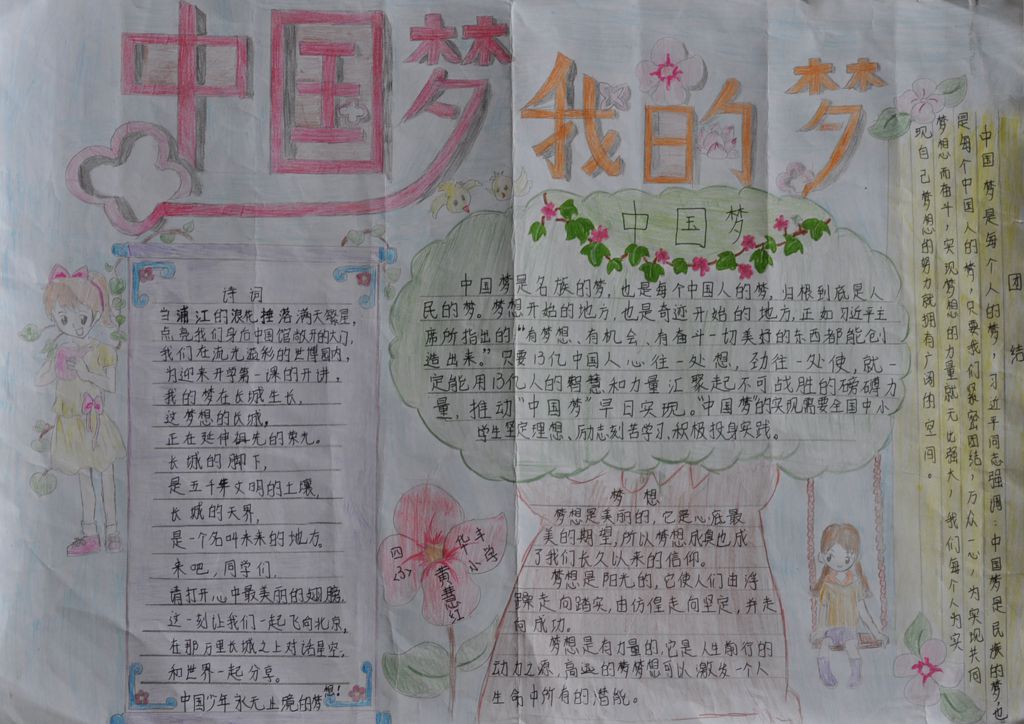 中国梦
我的梦
诗词
当浦江的浪花挫落满天繁星，
点亮我们身后中国馆敞开的大门，
我们在流光溢彩的世博园内，
为迎来开学第一课的开讲。
我的梦在长城生长，
这梦想的长城，
正在延伸祖先的荣光。
长城的脚下，
是五千年文明的土壤，
长城的天界，
是一个名叫未来的地方。
来吧，同学们，
请打开心中最美丽的翅膀，
这一刻让我们一起飞向北京，
在那万里长城之上对话星空，
和世界一起分享。
中国少年永无止境的梦想！
中国梦
中国梦是名族的梦，也是每个中国人的梦，归根到底是人
民的梦。梦想开始的地方，也是奇迹开始的地方，正如习近平主
席所指出的“有梦想、有机会、有奋斗一切美好的东西都能创
造出来。”只要13亿中国人心往一处想，劲往一处使，就一
定能用13亿人的智慧和力量汇聚起不可战胜的磅礴力
量，推动“中国梦”早日实现。“中国梦”的实现需要全国中小
学生坚定理想、励志刻苦学习、积极投身实践。
梦想
梦想是美丽的，它是心底最
美的期望，所以梦想成真也成
了我们长久以来的信仰。
梦想是阳光的，它使人们由浮
躁走向踏实，由彷徨走向坚定，并走
向成功。
梦想是有力量的，它是人生前行的
动力之源，高远的梦梦想可以激发一个人
生命中所有的潜能。
四
(3)
华丰
小学
黄慧红
团结
中国梦是每个人的梦，习近平同志强调：中国梦是民族的梦，也
是每个中国人的梦，只要我们紧密团结，万众一心，为实现共同
梦想而奋斗，实现梦想的力量就无比强大，我们每个人为实
现自己梦想的努力就拥有广阔的空间。